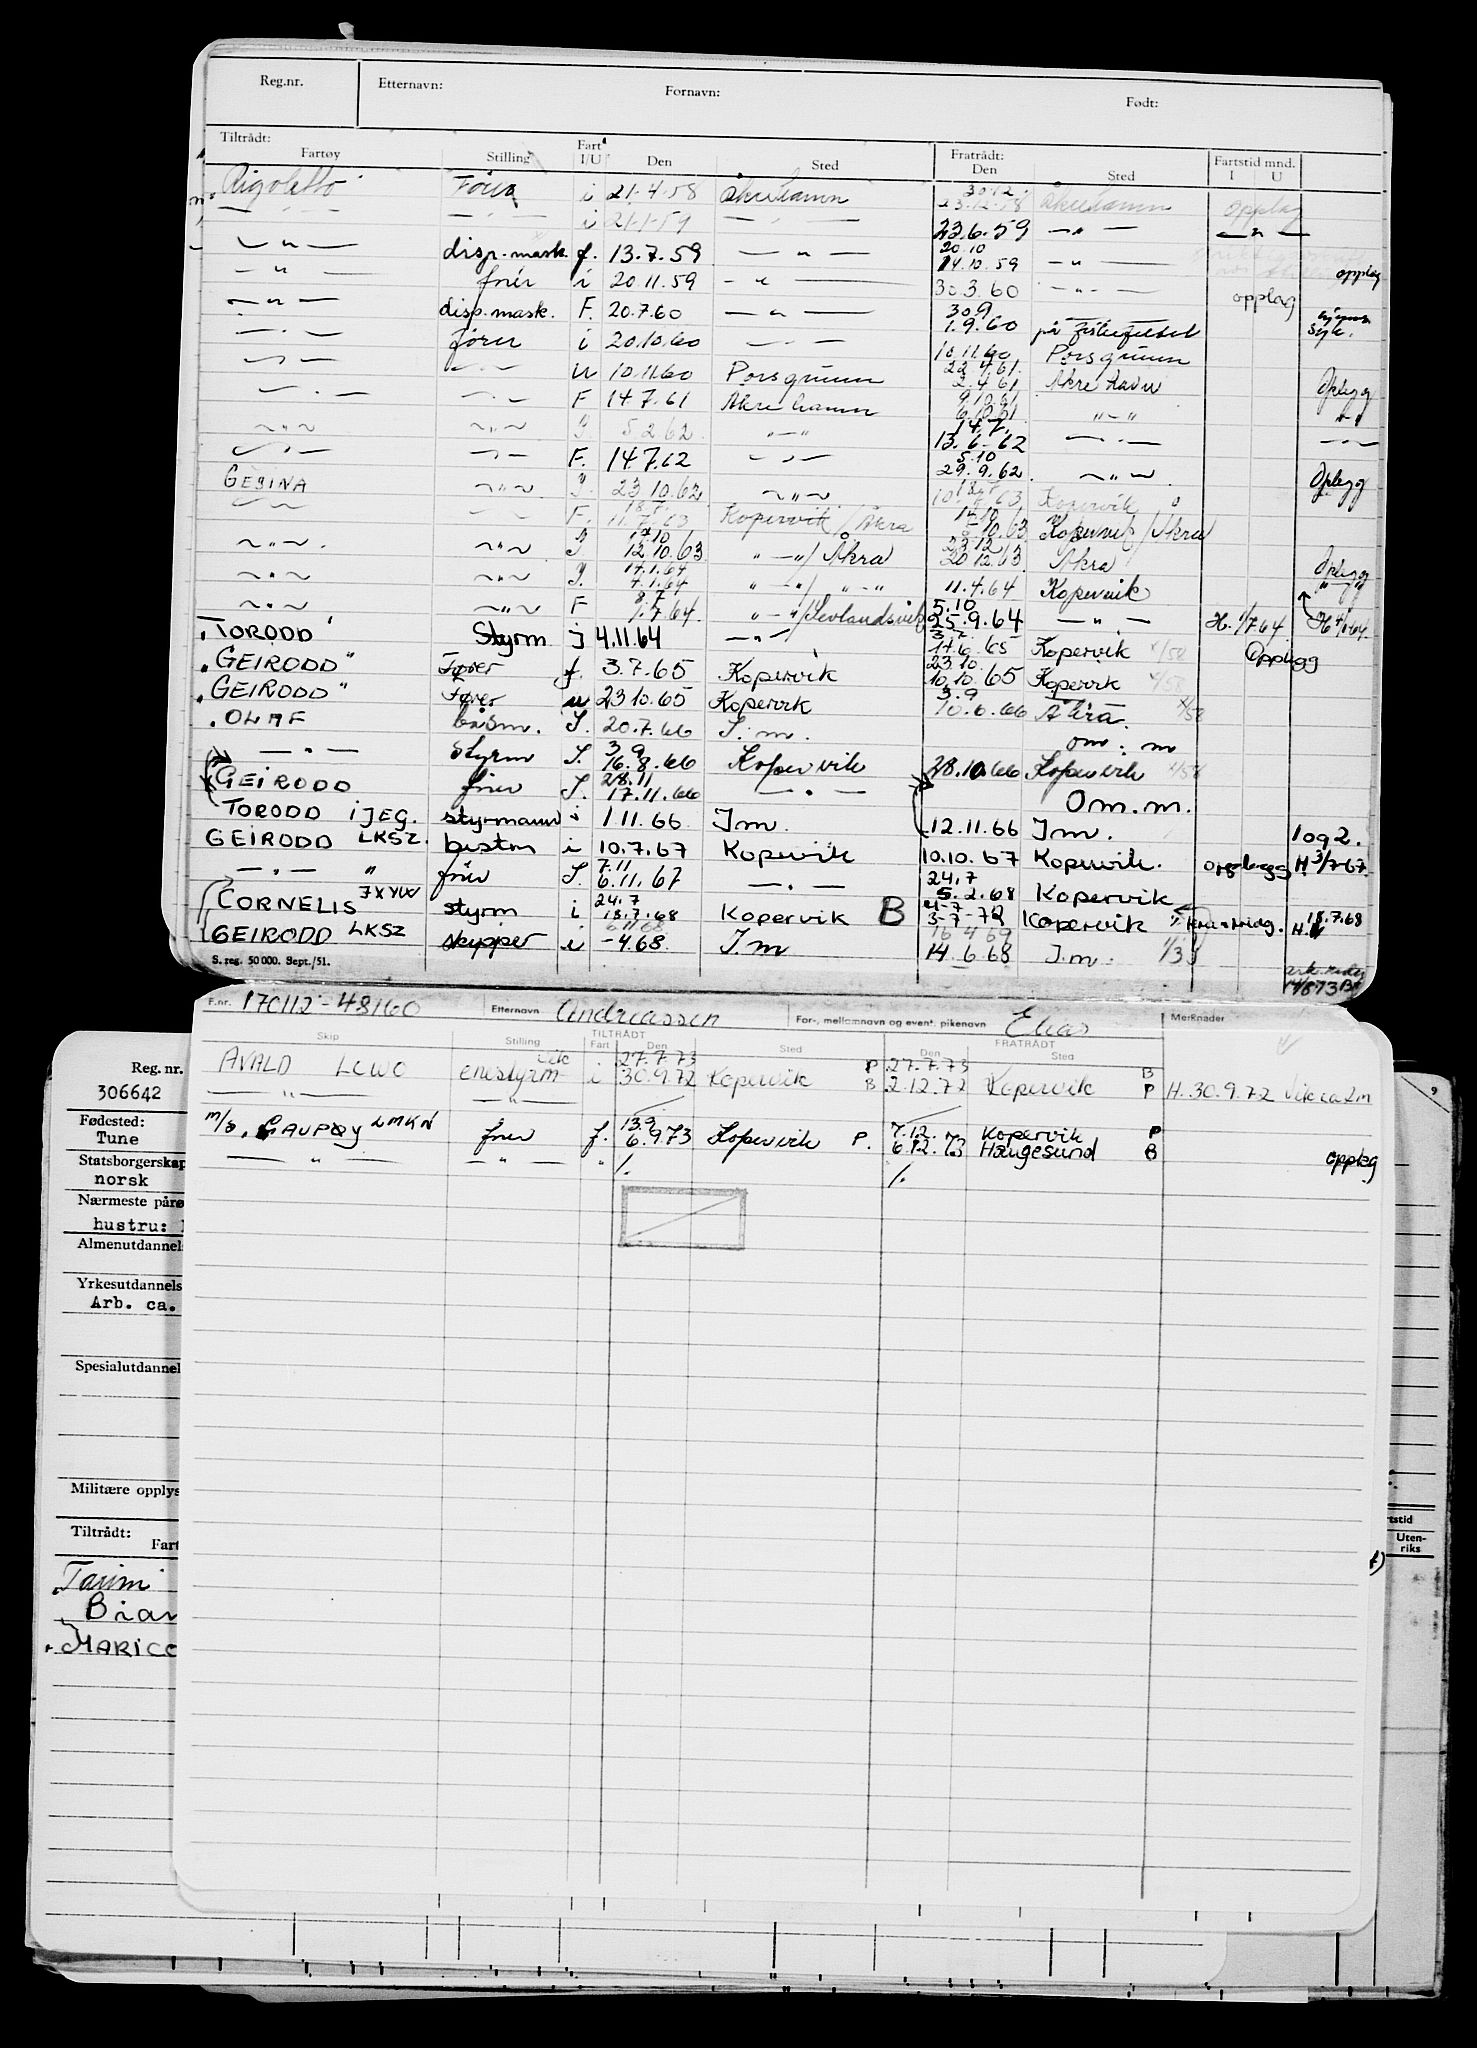 Reg.nr. Etternavn: Fornavn: Født:
Tiltrådt: Fratrådt:
Fartøy Stilling Fart I/U Den Sted Den Sted Fartstid mnd. I U
Rigoletto Fører i 21.4.58 Åkrehamn 30.12. 23.12.58 Åkrehamn opplag
— " — — " — i 21.1.59 — " — 23.6.59 — " — — " —
— " — disp. mask. f. 13.7.59 — " — 20.10 14.10.59 — " — opplag
— " — fører i 20.11.59 — " — 30.3.60 — " — opplag
— " — disp. mask. F. 20.7.60 — " — 30.9 1.9.60 på fiskefeltet syk.
— " — fører i 20.10.60 — " — 10.11.60 Porsgrunn
— " — — " — u 10.11.60 Porsgrunn 22.4.61. 2.4.61 Åkrehavn Oplegg
— " — — " — F 14.7.61 Åkrehamn 9.10.61 6.10.61 — " — — " —
— " — — " — I. 5.2.62. — " — 14.7. 13.6-62 — " — — " —
— " — — " — F. 14.7.62 — " — 5.10 29.9.62. — " — Oplegg
GESINA — " — I. 23.10.62 — " — Kopervik
— " — — " — F. 18.7. 11.7.63 Kopervik/Åkra 10.63 Kopervik/Åkra
— " — — " — I 12.10.63 — " —/Åkra 23.12 20.12.63 Åkra Oplegg
— " — — " — I. 14.1.64 4.1.64 — " —/ — " — 11.4.64 Kopervik — " —
— " — — " — F 8.7 1.7.64 — " —/Sevlandsvik 5.10 25.9.64 — " — H. 1/7.64
"TORODD" Styrm I 4.11.64 — " — 17.6.65 Kopervik 4/58 Opplegg
"GEIRODD" Fører f. 3.7.65 Kopervik 23.10. 10.10.65 Kopervik 4/58
"GEIRODD" Fører u 23.10.65 Kopervik 3.9 10.6.66 Åkra 4/58
"OLAF båsm. I. 20.7.66 I.m. om. m
— " — Styrm I. 3.9 16.8.66 Kopervik 28.10.66 Kopervik 4/58
GEIRODD fører I. 28.11 17.11.66 — " — Om.m.
TORODD iJEG. styrmann i 1.11.66 Im. 12.11.66 Im. 1 og 2.
GEIRODD LKSZ. bestm i 10.7.67 Kopervik 10.10.67 Kopervik. opplegg H 3/7-67.
— " — " fører I. 7.11 6.11.67 — " — 24.7 5.2.68 Kopervik
CORNELIS JXYW styrm i 24.7 18.7.68 Kopervik B 4-7 3-7-72 Kopervik H. 18.7.68
GEIRODD LKSZ skipper i -4.68 I.m 14.6.68 I.m.
S. reg. 50 000. Sept./51.
F.nr. 170112-48160 Etternavn Andreassen For-, mellomnavn og event. pikenavn Elias Merknader
TILTRÅDT FRATRÅDT
Skip Stilling Fart Den Sted Den Sted
AVALD LCWO enestyrm vik i 27.7.73 30.9.72 Kopervik P B 27.7.73 2.12.72 Kopervik B P H. 30.9.72 Vik ca 2m
— " — — " —
m/s. GAUPØY LMKN fører f. 13.9 6.9.73 Kopervik P. 7.12. 6.12.73 Kopervik P
— " — — " — " Haugesund B opplag
Reg. nr.
306642
Fødested:
Tune
Statsborgerskap
norsk
Nærmeste pårø
hustru:
Almenutdannels
Yrkesutdannels
Arb. ca.
Spesialutdannel
Militære opplys
Tiltrådt:
Fart
Taimi
Bian
MARICO
rtstid
Uten-
riks